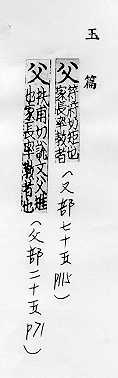 玉篇
父 符府切矩也
家長率教者
(又部七十五 P115)
父 扶甫切說文父矩
也家長率教者也
(父部二十五 P71)